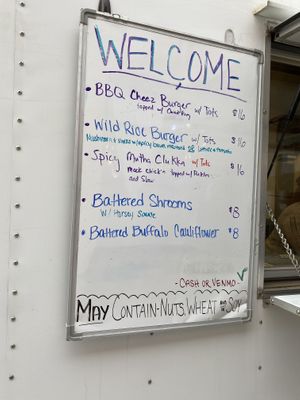 WELCOME
• BBQ Cheez Burger w/ Tots $16
topped w/
• Wild Rice Burger w/ Tots $16
Mushroom & Swiss w/ spicy brown mustard OR Lettuce & tomato
• Spicy Motha Clukka w/ Tots $16
Mock Chick'n topped w/ Pickles
and Slaw
• Battered Shrooms $8
w/ Horsey Sauce
• Battered Buffalo Cauliflower $8
- CASH OR VENMO -
MAY CONTAIN-NUTS, WHEAT AND SOY